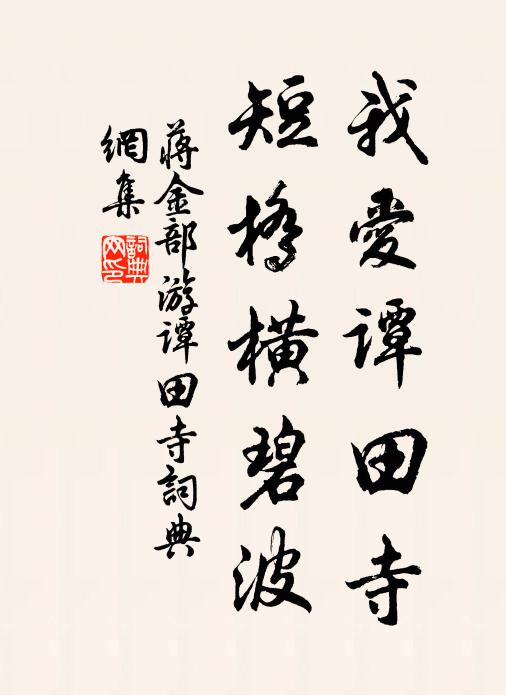 我愛譚田寺
短橋橫碧波
蔣金部游譚田寺詞典
網集
詞典
网印